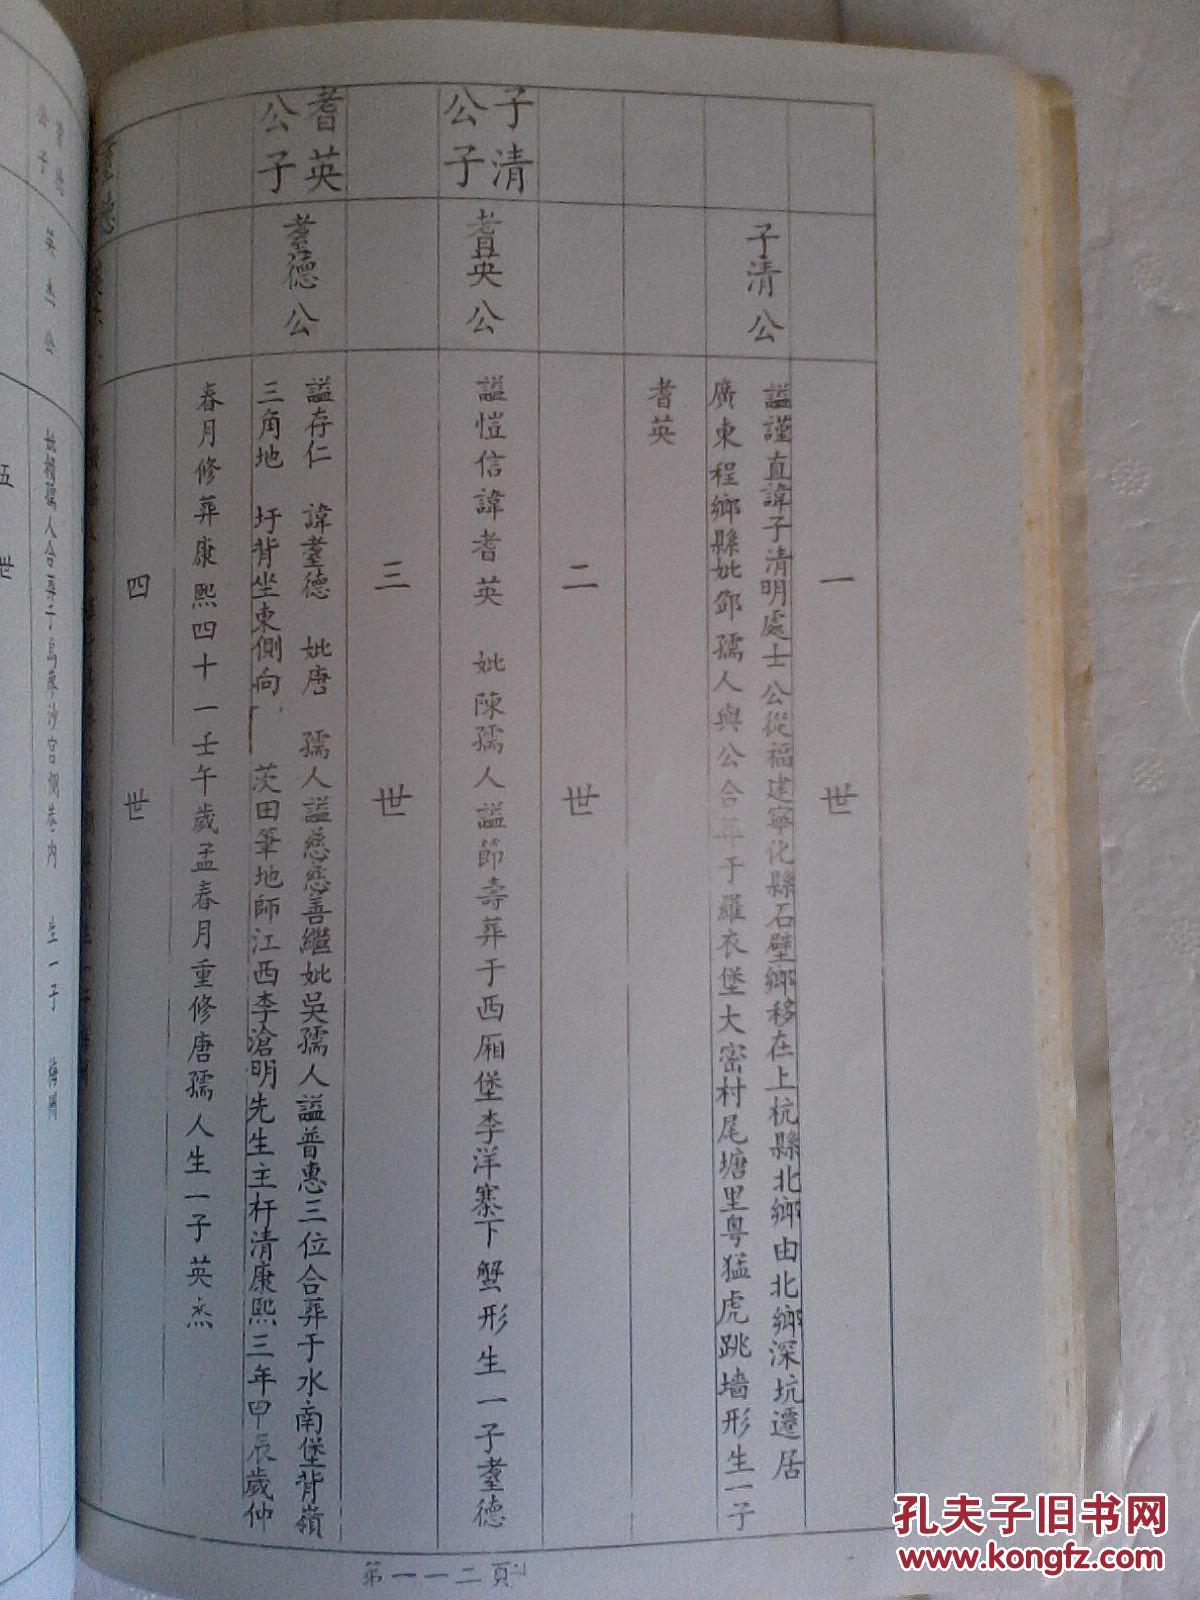 一世
子清公
謚謹直諱子清明處士公從福建寧化縣石壁鄉移在上杭縣北鄉由北鄉深坑遷居
廣東程鄉縣妣鄧孺人與公合葬于羅衣堡大密村尾塘里粤猛虎跳墙形生一子
耆英
二世
子清公子
耆英公
謚愷信諱耆英 妣陳孺人謚節壽葬于西厢堡李洋寨下蟹形生一子耋德
三世
耆英公子
耋德公
謚存仁 諱耋德 妣唐 孺人謚慈慈善繼妣吳孺人謚普惠三位合葬于水南堡背嶺
三角地 圩背坐東側向 茨田筆地師江西李滄明先生主杆清康熙三年甲辰歲仲
春月修葬康熙四十一壬午歲孟春月重修唐孺人生一子英杰
四世
英杰公
五世
第一一二頁
孔夫子旧书网
www.kongfz.com